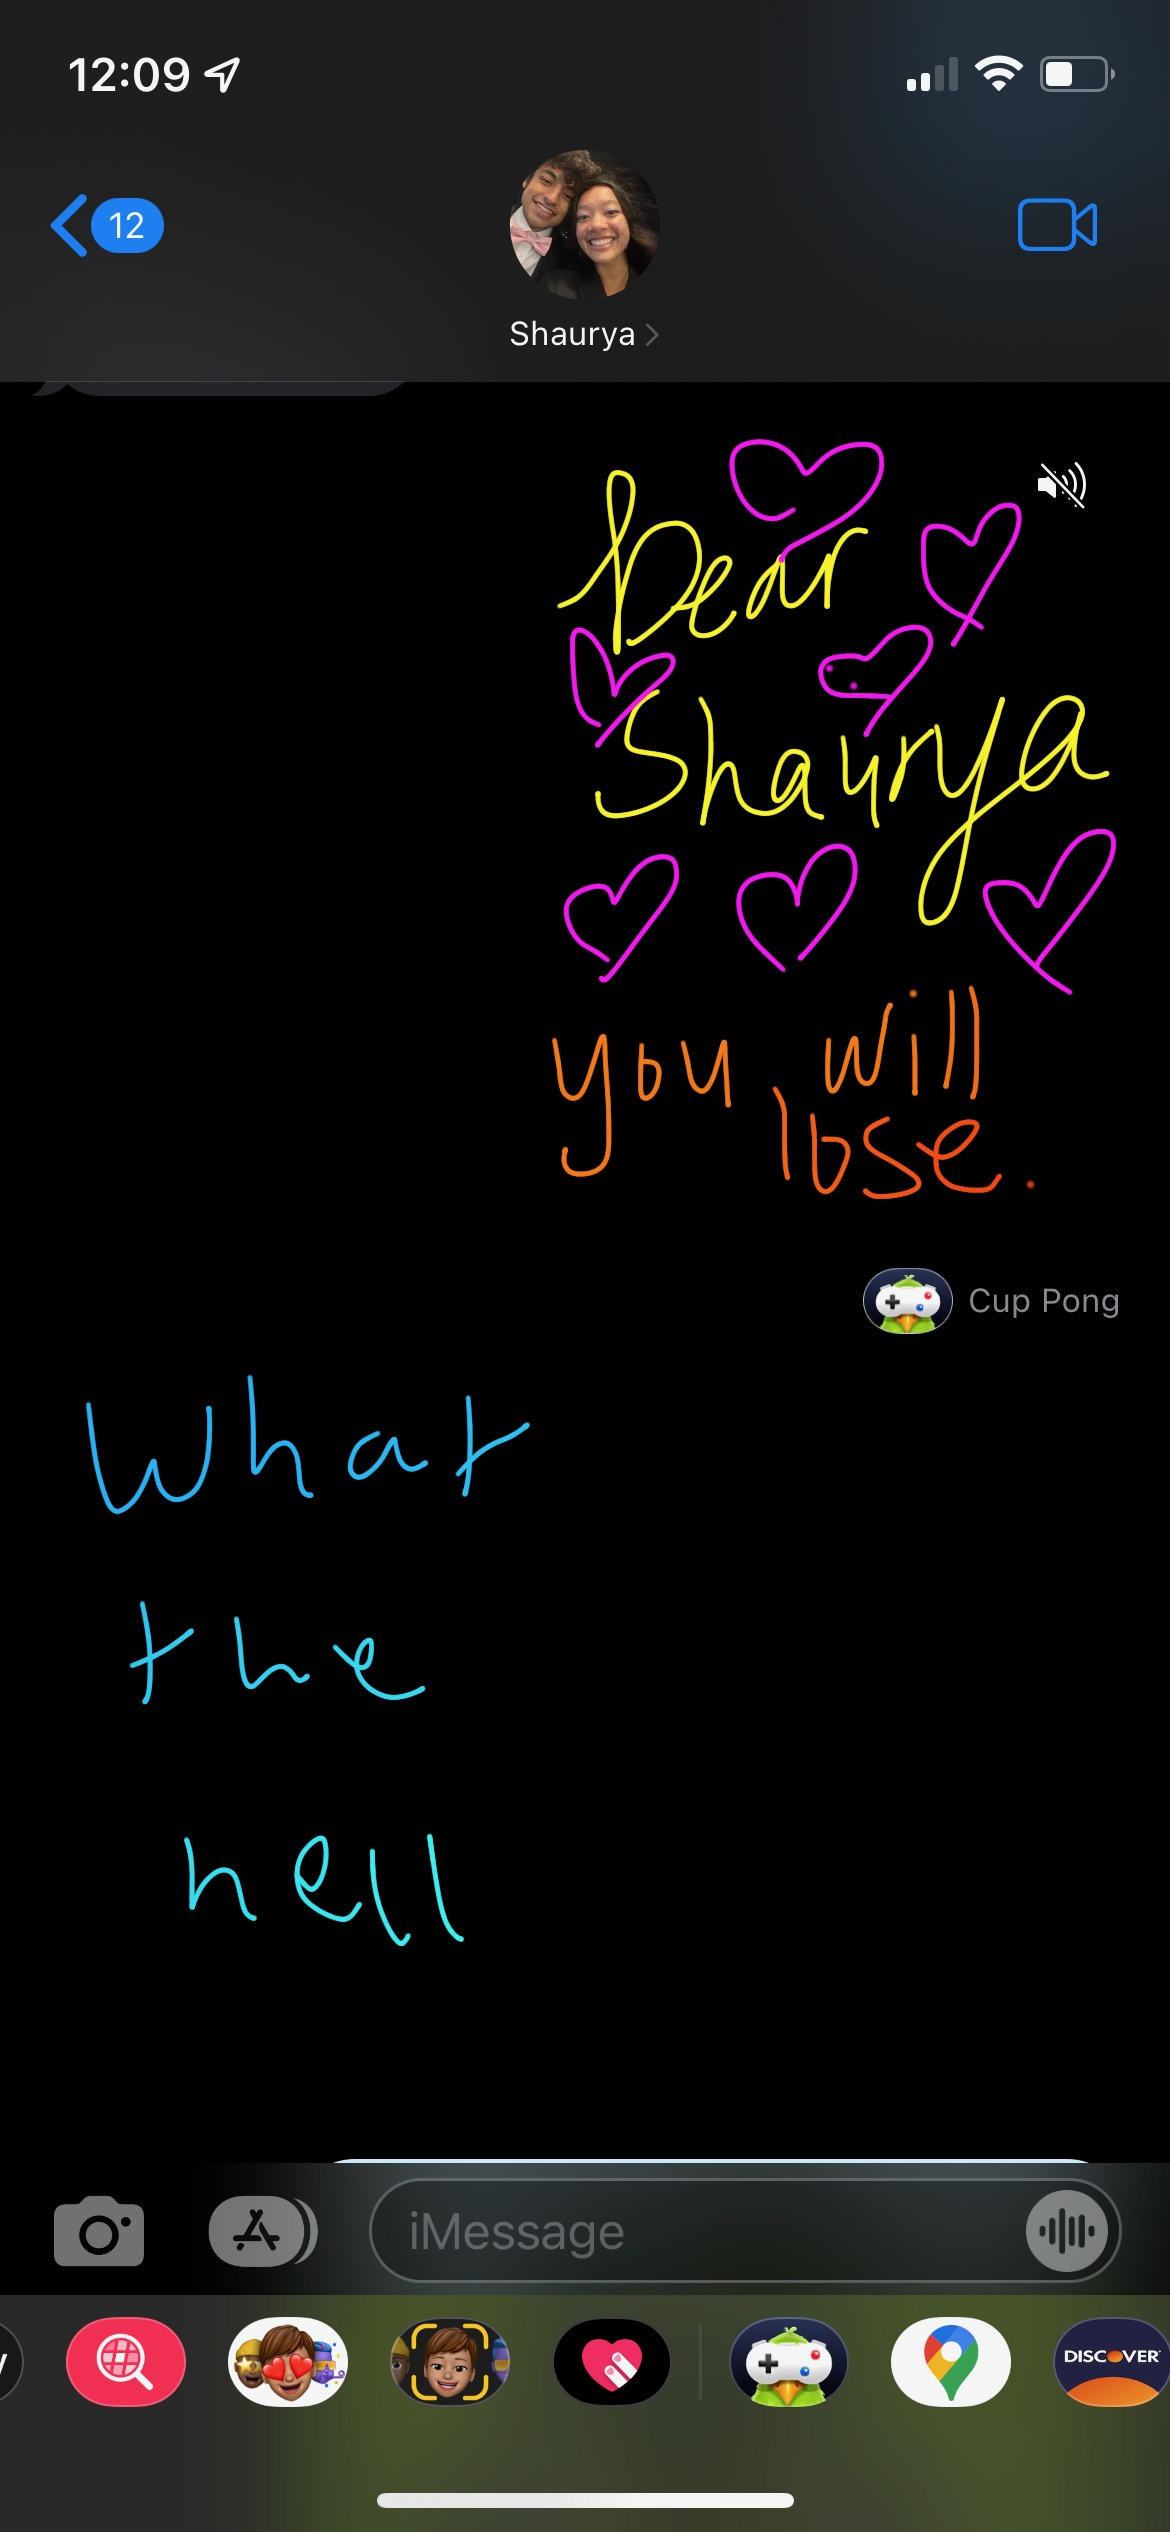 12:09
12
Shaurya
Dear
Shaurya
you will
lose.
Cup Pong
What
the
hell
iMessage
DISCOVER